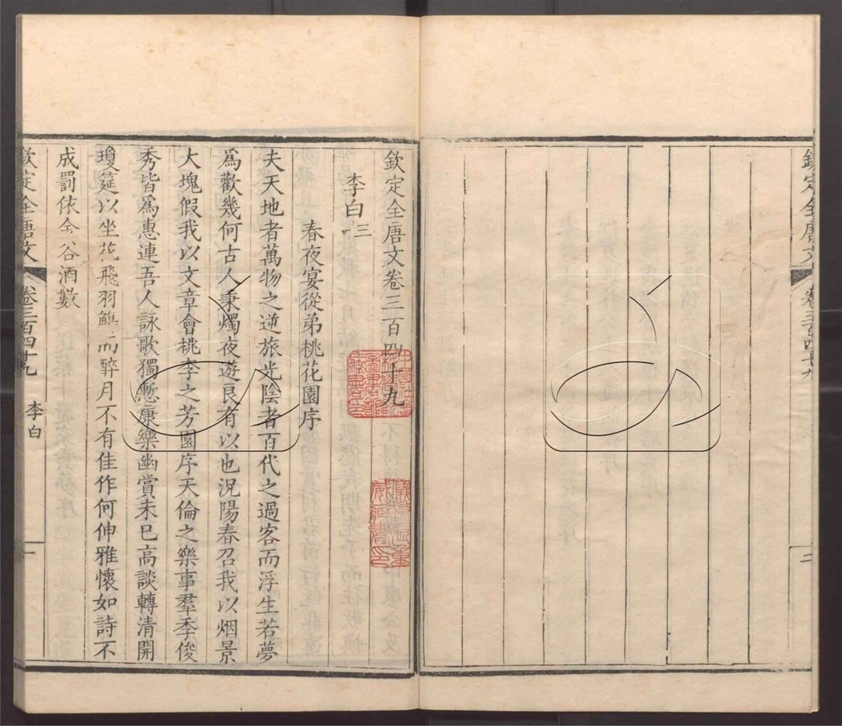 欽定全唐文
卷三百四十九
二
欽定全唐文卷三百四十九
李白三
春夜宴從弟桃花園序
夫天地者萬物之逆旅光陰者百代之過客而浮生若夢
爲歡幾何古人秉燭夜遊良有以也況陽春召我以烟景
大塊假我以文章會桃李之芳園序天倫之樂事羣季俊
秀皆爲惠連吾人詠歌獨慙康樂幽賞未已高談轉清開
瓊筵以坐花飛羽觴而醉月不有佳作何伸雅懷如詩不
成罰依金谷酒數
欽定全唐文
卷三百四十九
李白
一